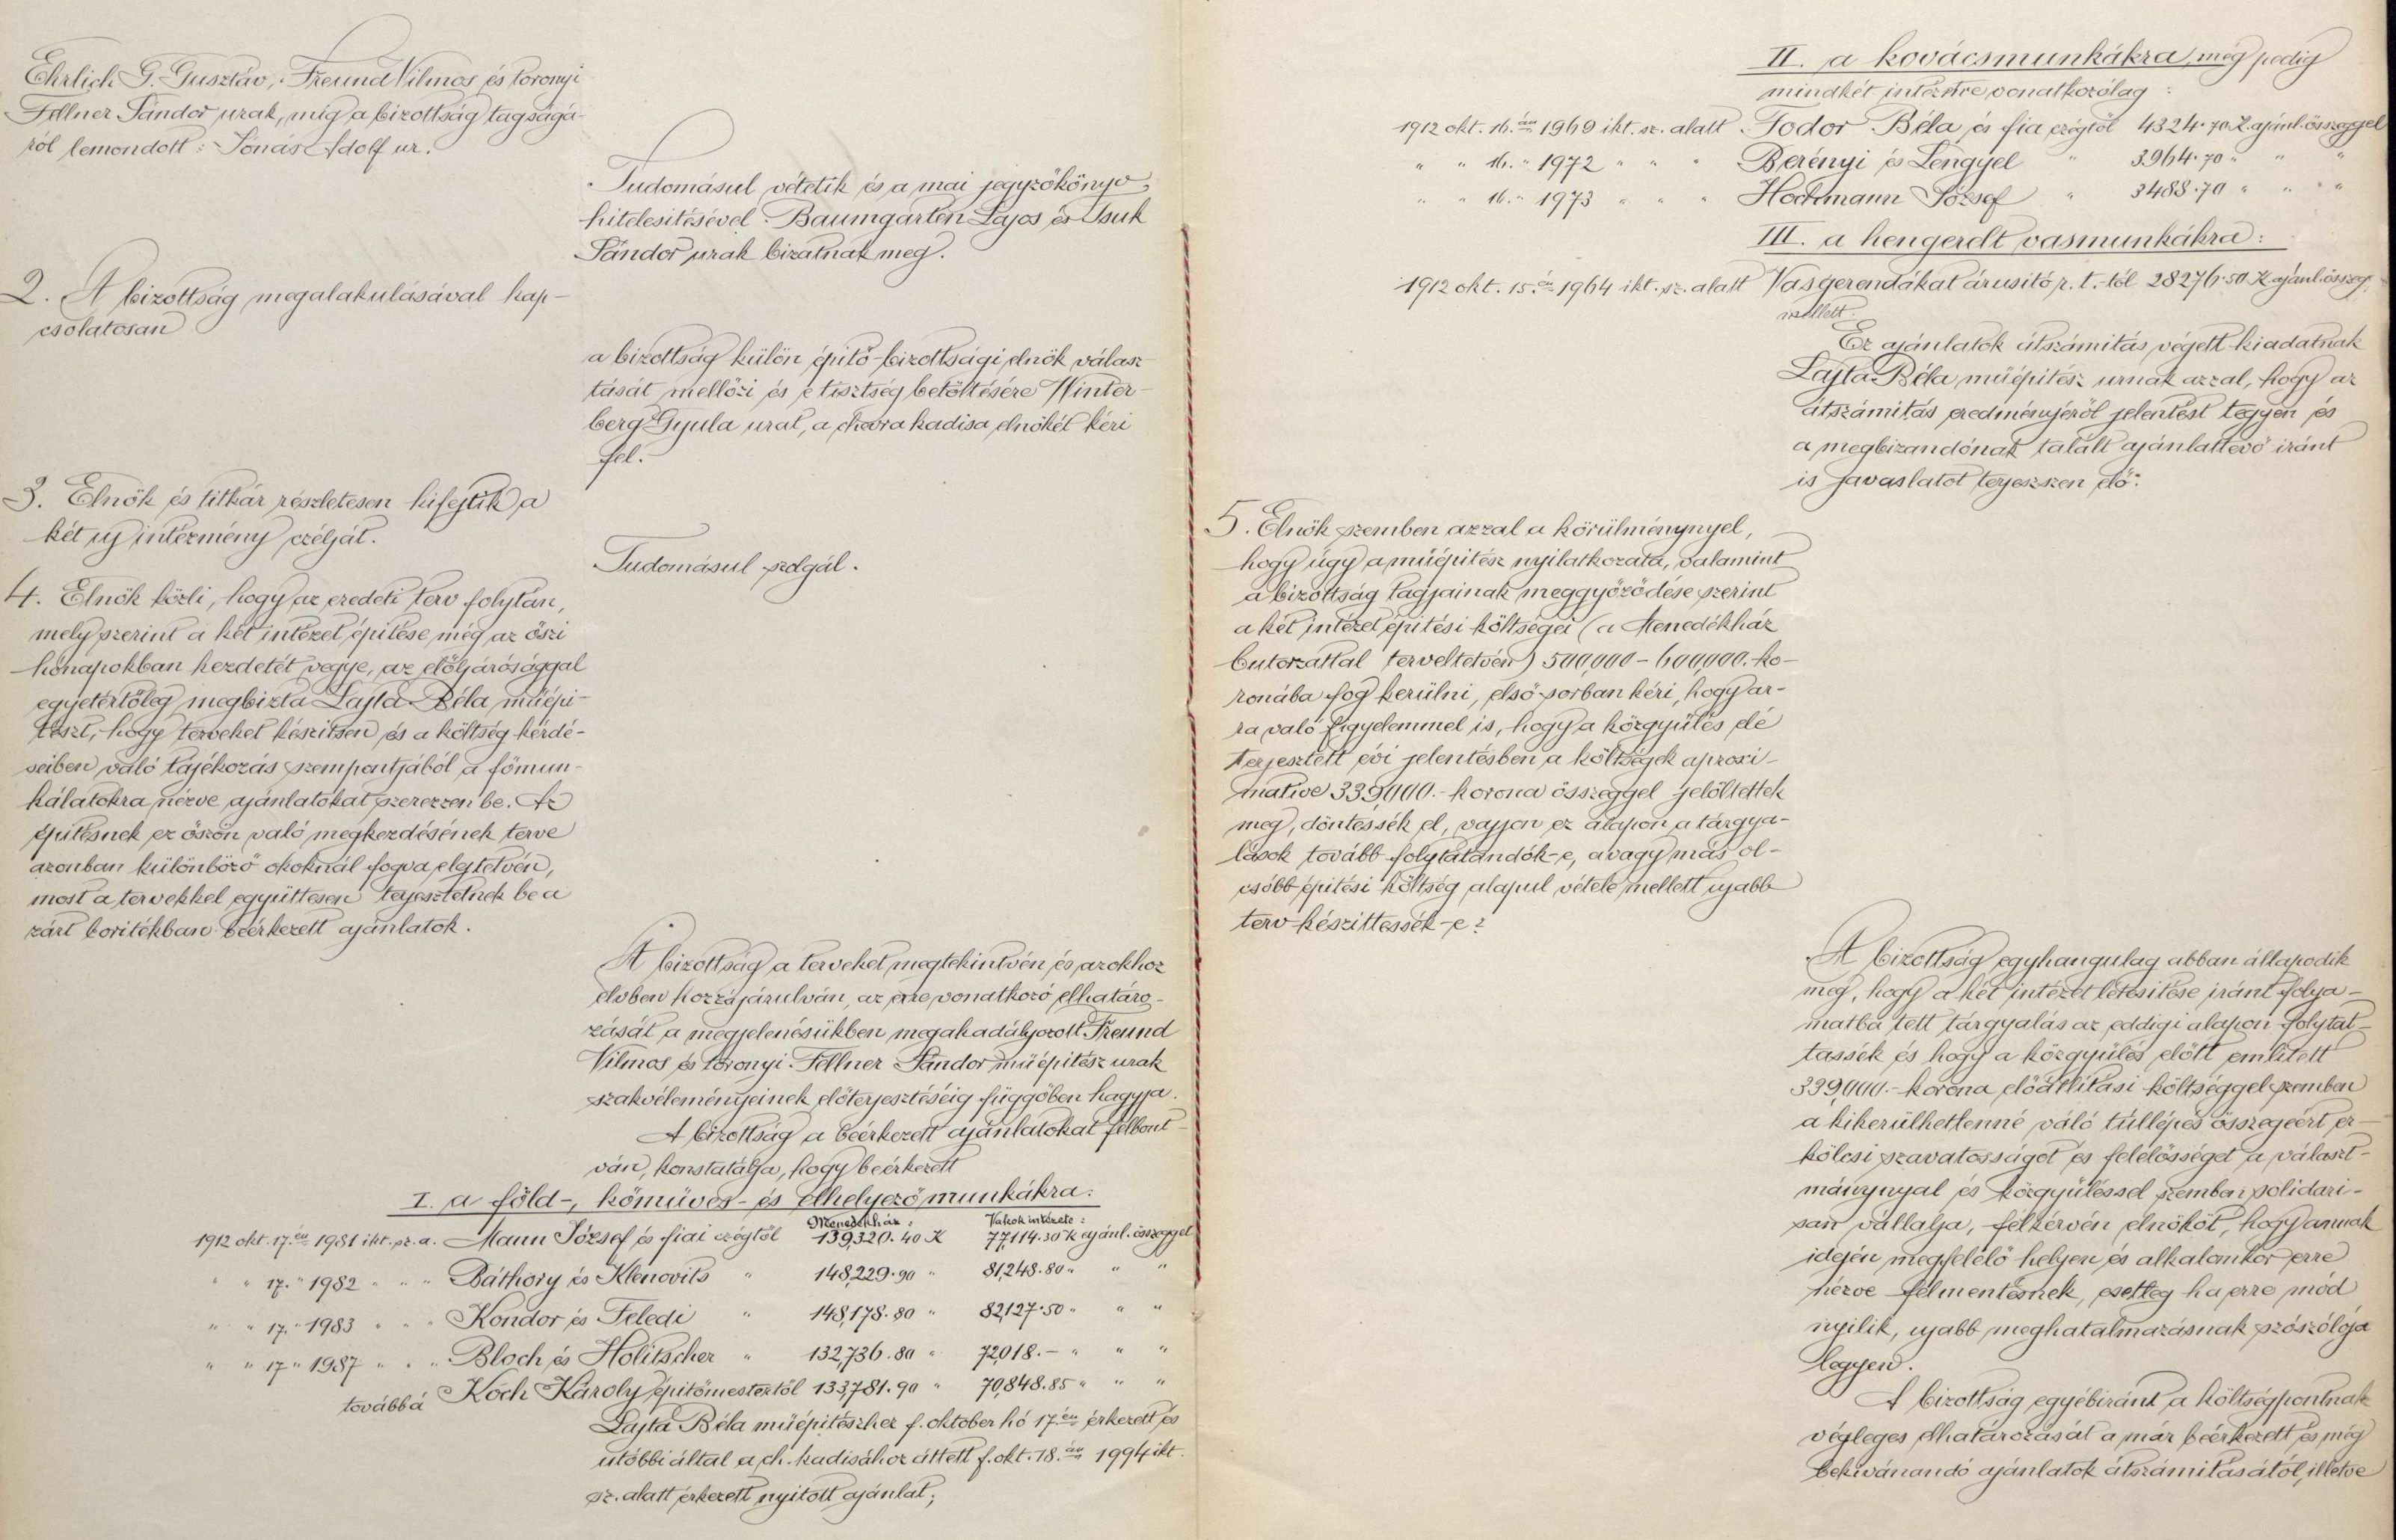 Ehrlich G. Gusztáv, Freund Vilmos és toronyi
Fellner Sándor urak, míg a bizottság tagságá-
ról lemondott: Jónás Adolf ur.
Tudomásul vétetik és a mai jegyzőkönyv
hitelesitésével Baumgarten Lajos és Isuk
Sándor urak bizatnak meg.
2. A bizottság megalakulásával kap-
csolatosan
a bizottság külön épitő-bizottsági elnök válasz-
tását mellőzi és e tisztség betöltésére Winter-
berg Gyula urat, a chevra kadisa elnökét kéri
fel.
3. Elnök és titkár részletesen kifejtik a
két uj intézmény czélját.
Tudomásul szolgál.
4. Elnök közli, hogy az eredeti terv folytán,
mely szerint a két intézet épitése még az őszi
hónapokban kezdetét vegye, az előljárósággal
egyetértőleg megbizta Lajta Béla műépi-
tészt, hogy terveket készitsen és a költség kérdé-
seiben való tájékozás szempontjából a főmun-
kálatokra nézve ajánlatokat szerezzen be. Az
épitésnek ez őszön való megkezdésének terve
azonban különböző okoknál fogva elejtetvén,
most a tervekkel együttesen terjesztetnek be a
zárt boritékban beérkezett ajánlatok.
A bizottság a terveket megtekintvén és azokhoz
elvben hozzájárulván, az erre vonatkozó elhatáro-
zását a megjelenésükben megakadályozott Freund
Vilmos és toronyi Fellner Sándor műépitész urak
szakvéleményeinek előterjesztéséig függőben hagyja.
A bizottság a beérkezett ajánlatokat felbont-
ván, konstatálja, hogy beérkezett
I. a föld-, kőmüves- és elhelyező munkákra:
Menedékház: Vakok intézete:
1912 okt. 17.én 1981 ikt. sz. a. Mann József és fiai czégtől 139,320.40 K 77,114.30 K ajánl. összeggel
" " 17. " 1982 " " " Báthory és Klenovits " 148,229.90 " 81,248.80 " " "
" " 17. " 1983 " " " Kondor és Feledi " 148,178.80 " 82,127.50 " " "
" " 17 " 1987 " " " Bloch és Holitscher " 132,736.80 " 72,018.- " " "
továbbá Koch Károly épitőmestertől 133,781.90 " 70,848.85 " " "
Lajta Béla műépitészhez f. október hó 17.én érkezett és
utóbbi által a ch. kadisához áttett f. okt. 18.án 1994 ikt.
sz. alatt érkezett nyitott ajánlat;
II. a kovácsmunkákra, még pedig
mindkét intézetre vonatkozólag:
1912 okt. 16.án 1969 ikt. sz. alatt Fodor Béla és fia czégtől 4324.70 K. ajánl. összeggel
" " 16. " 1972 " " " Berényi és Lengyel " 3964.70 " " "
" " 16. " 1973 " " " Hochmann József " 3488.70 " " "
III. a hengerelt vasmunkákra:
1912 okt. 15.én 1964 ikt. sz. alatt Vasgerendákat árusitó r. t.-től 28276.50 K ajánl. összeg
mellett.
Ez ajánlatok átszámitás végett kiadatnak
Lajta Béla műépitész urnak azzal, hogy az
átszámitás eredményéről jelentést tegyen és
a megbizandónak talált ajánlattevő iránt
is javaslatot terjesszen elő.
5. Elnök szemben azzal a körülménynyel,
hogy úgy a műépitész nyilatkozata, valamint
a bizottság tagjainak meggyőződése szerint
a két intézet épitési költségei (a Menedékház
butorzattal terveltetvén) 500,000 - 600,000.- ko-
ronába fog kerülni, első sorban kéri, hogy ar-
ra való figyelemmel is, hogy a közgyülés elé
terjesztett évi jelentésben a költségek aproxi-
mative 339,000.- korona összeggel jelöltettek
meg, döntessék el, vajjon ez alapon a tárgya-
lások tovább folytatandók-e, avagy más ol-
csóbb épitési költség alapul vétele mellett ujabb
terv készittessék-e?
A bizottság egyhangulag abban állapodik
meg, hogy a két intézet létesitése iránt folya-
matba tett tárgyalás az eddigi alapon folytat-
tassék és hogy a közgyülés előtt emlitett
339,000.- korona előállitási költséggel szemben
a kikerülhetlenné váló túllépés összegéért er-
kölcsi szavatosságot és felelősséget a választ-
mánynyal és közgyüléssel szemben solidari-
san vállalja, felkérvén elnököt, hogy annak
idején megfelelő helyen és alkalomkor erre
nézve felmentésnek, esetleg ha erre mód
nyilik, ujabb meghatalmazásnak szószólója
legyen.
A bizottság egyébiránt a költségpontnak
végleges elhatározását a már beérkezett és még
bekivánandó ajánlatok átszámitásától, illetve